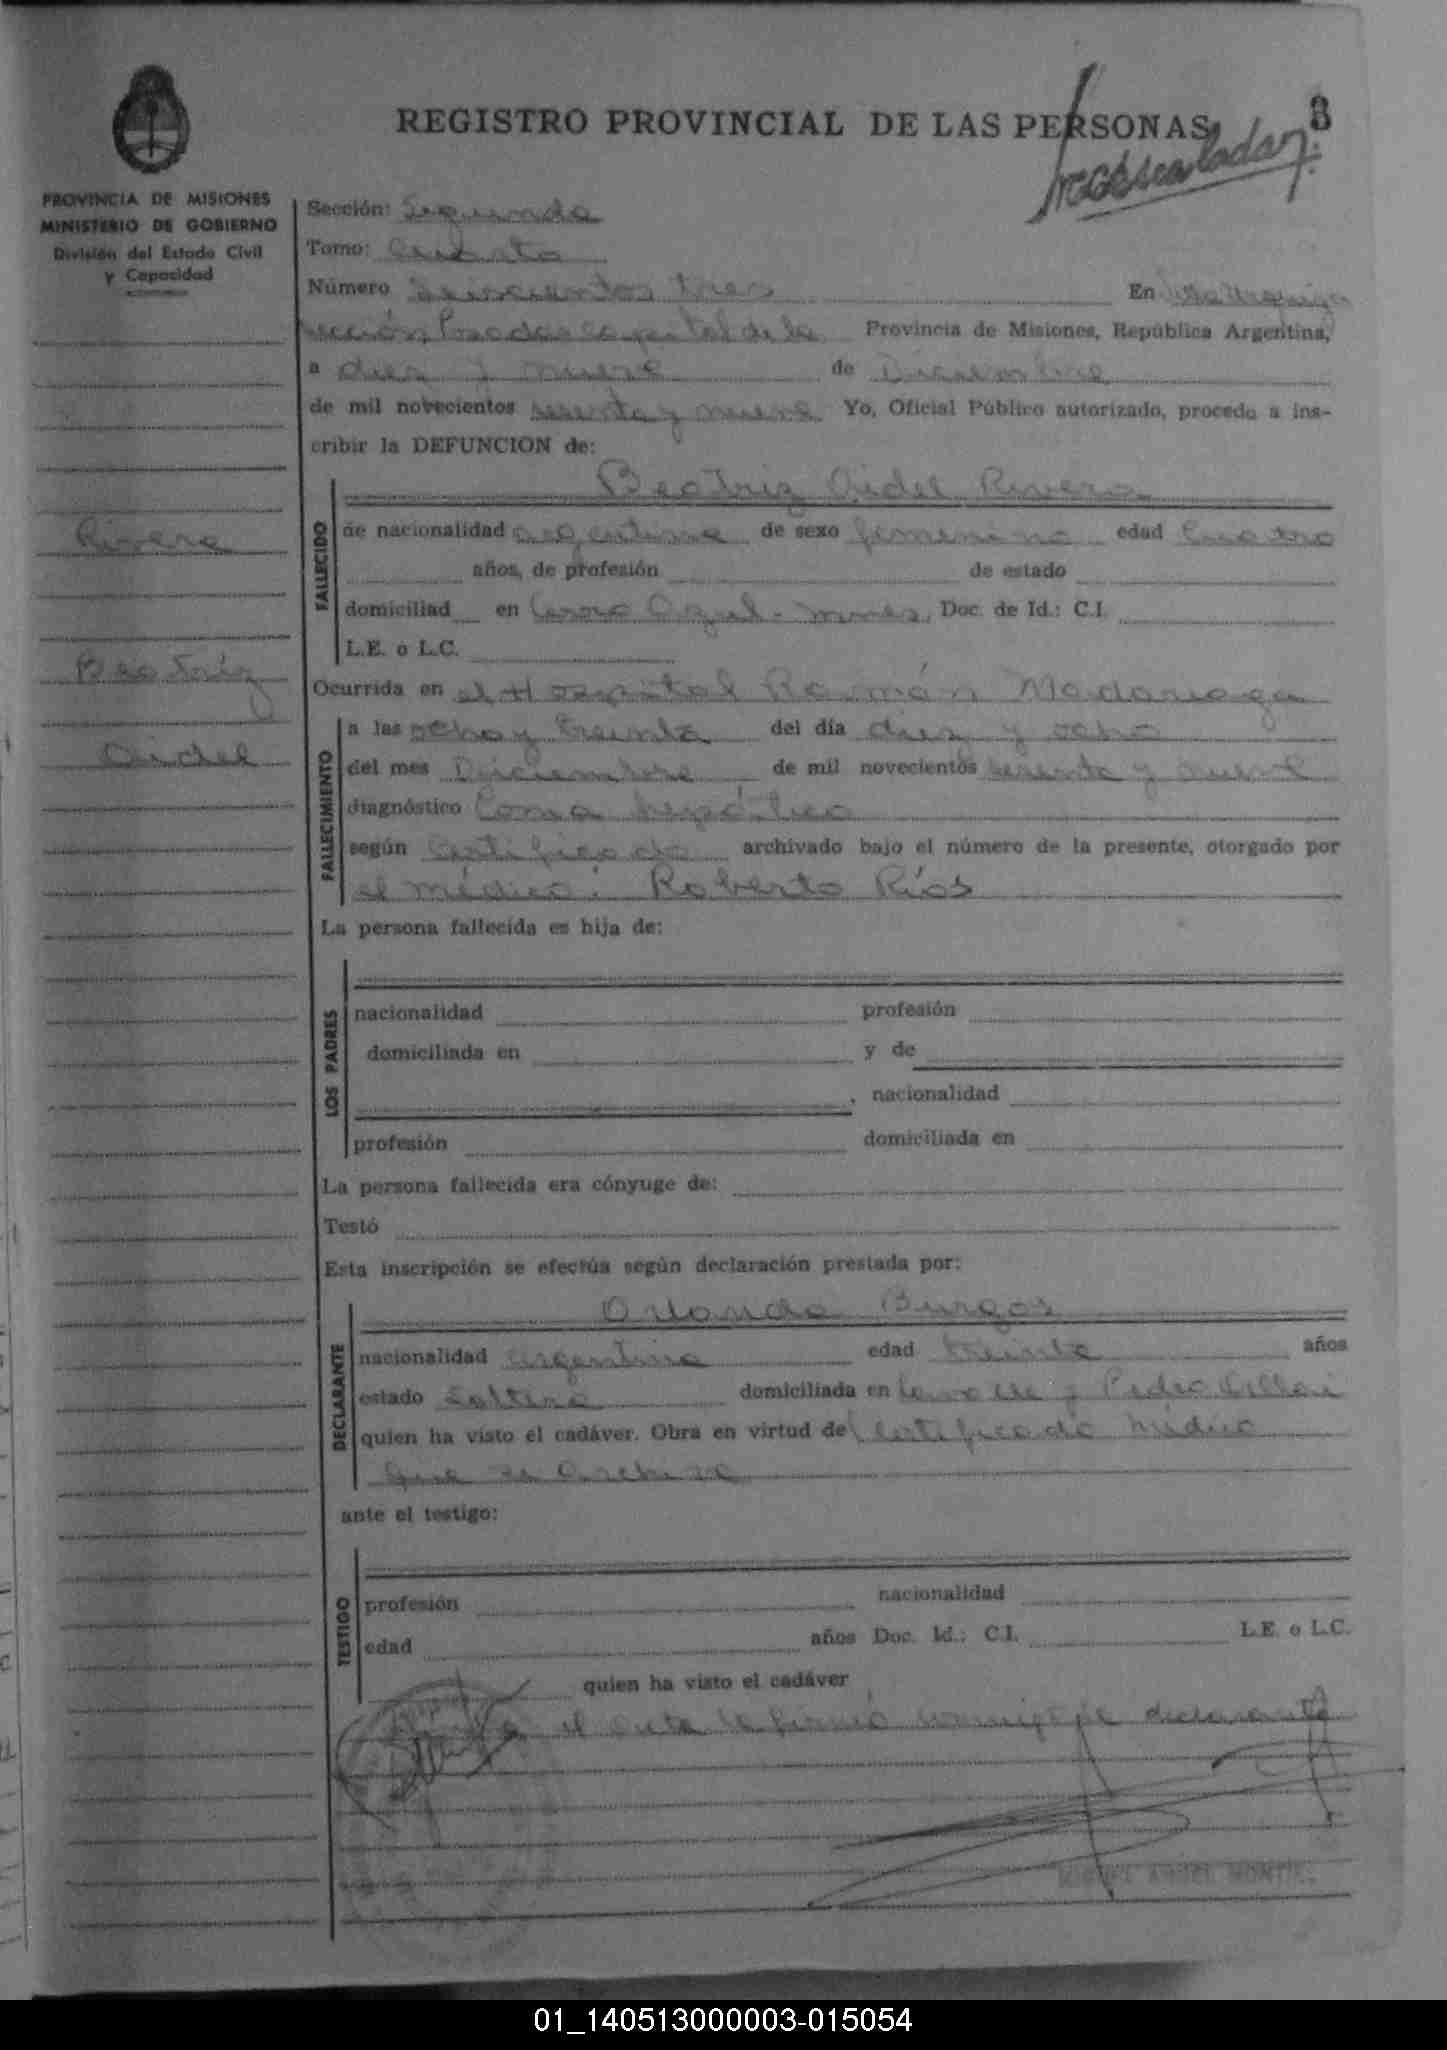 REGISTRO PROVINCIAL DE LAS PERSONAS
3
PROVINCIA DE MISIONES
MINISTERIO DE GOBIERNO
División del Estado Civil
y Capacidad
Sección: Segunda
Tomo: Cuarto
Número Seiscientos tres En Villa Urquiza
sección, Posadas capital de la Provincia de Misiones, República Argentina,
a diez y nueve de Diciembre
de mil novecientos sesenta y nueve Yo, Oficial Público autorizado, procedo a ins-
cribir la DEFUNCION de:
Rivera
Beatriz
Aidel
FALLECIDO
Beatriz Aidel Rivera
de nacionalidad argentina de sexo femenino edad Cuatro
años, de profesión de estado
domiciliad en Cerro Azul - mnes, Doc. de Id.: C.I.
L.E. o L.C.
Ocurrida en el Hospital Ramón Madariaga
FALLECIMIENTO
a las ocho y treinta del día diez y ocho
del mes Diciembre de mil novecientos sesenta y nueve
diagnóstico Coma hepático
según Certificado archivado bajo el número de la presente, otorgado por
el médico: Roberto Ríos
La persona fallecida es hija de:
LOS PADRES
nacionalidad profesión
domiciliada en y de
, nacionalidad
profesión domiciliada en
La persona fallecida era cónyuge de:
Testó
Esta inscripción se efectúa según declaración prestada por:
DECLARANTE
Orlando Burgos
nacionalidad argentina edad treinta años
estado Soltero domiciliada en Lavalle y Pedro
quien ha visto el cadáver. Obra en virtud de Certificado médico
que se archiva
ante el testigo:
TESTIGO
profesión nacionalidad
edad años Doc. Id.: C.I. L.E. o L.C.
quien ha visto el cadáver
el acta la firmó conmigo el declarante
MIGUEL ANGEL
01_140513000003-015054